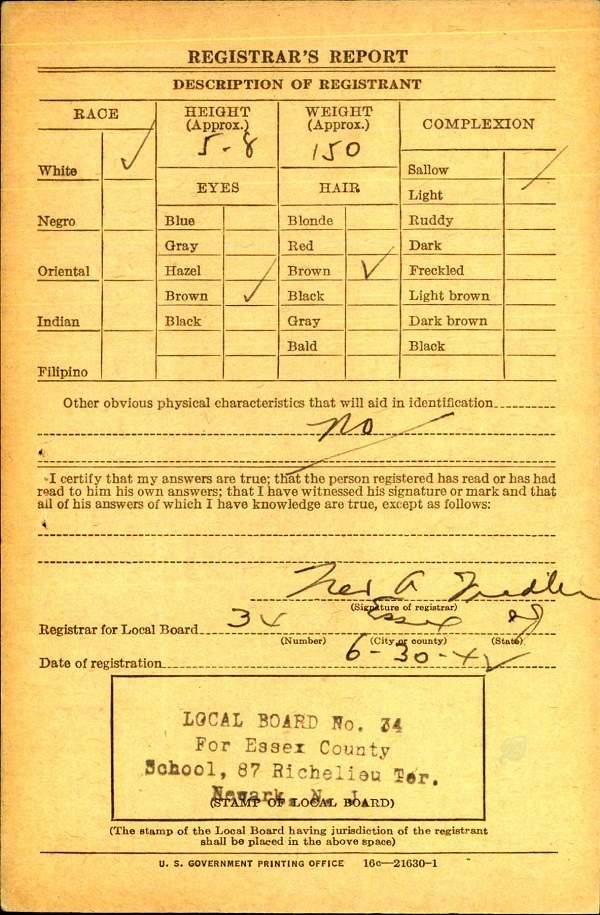 REGISTRAR'S REPORT
DESCRIPTION OF REGISTRANT
RACE
HEIGHT
(Approx.)
WEIGHT
(Approx.)
COMPLEXION
5-8
150
White ✓
Sallow
EYES
HAIR
Light
Negro
Blue
Blonde
Ruddy
Gray
Red
Dark
Oriental
Hazel
Brown ✓
Freckled
Brown ✓
Black
Light brown
Indian
Black
Gray
Dark brown
Bald
Black
Filipino
Other obvious physical characteristics that will aid in identification
no
I certify that my answers are true; that the person registered has read or has had
read to him his own answers; that I have witnessed his signature or mark and that
all of his answers of which I have knowledge are true, except as follows:
A
(Signature of registrar)
Registrar for Local Board 34 Essex NJ
(Number) (City or county) (State)
Date of registration 6-30-42
LOCAL BOARD No. 34
For Essex County
School, 87 Richelieu Ter.
Newark, N. J.
(STAMP OF LOCAL BOARD)
(The stamp of the Local Board having jurisdiction of the registrant
shall be placed in the above space)
U. S. GOVERNMENT PRINTING OFFICE 16c—21630-1